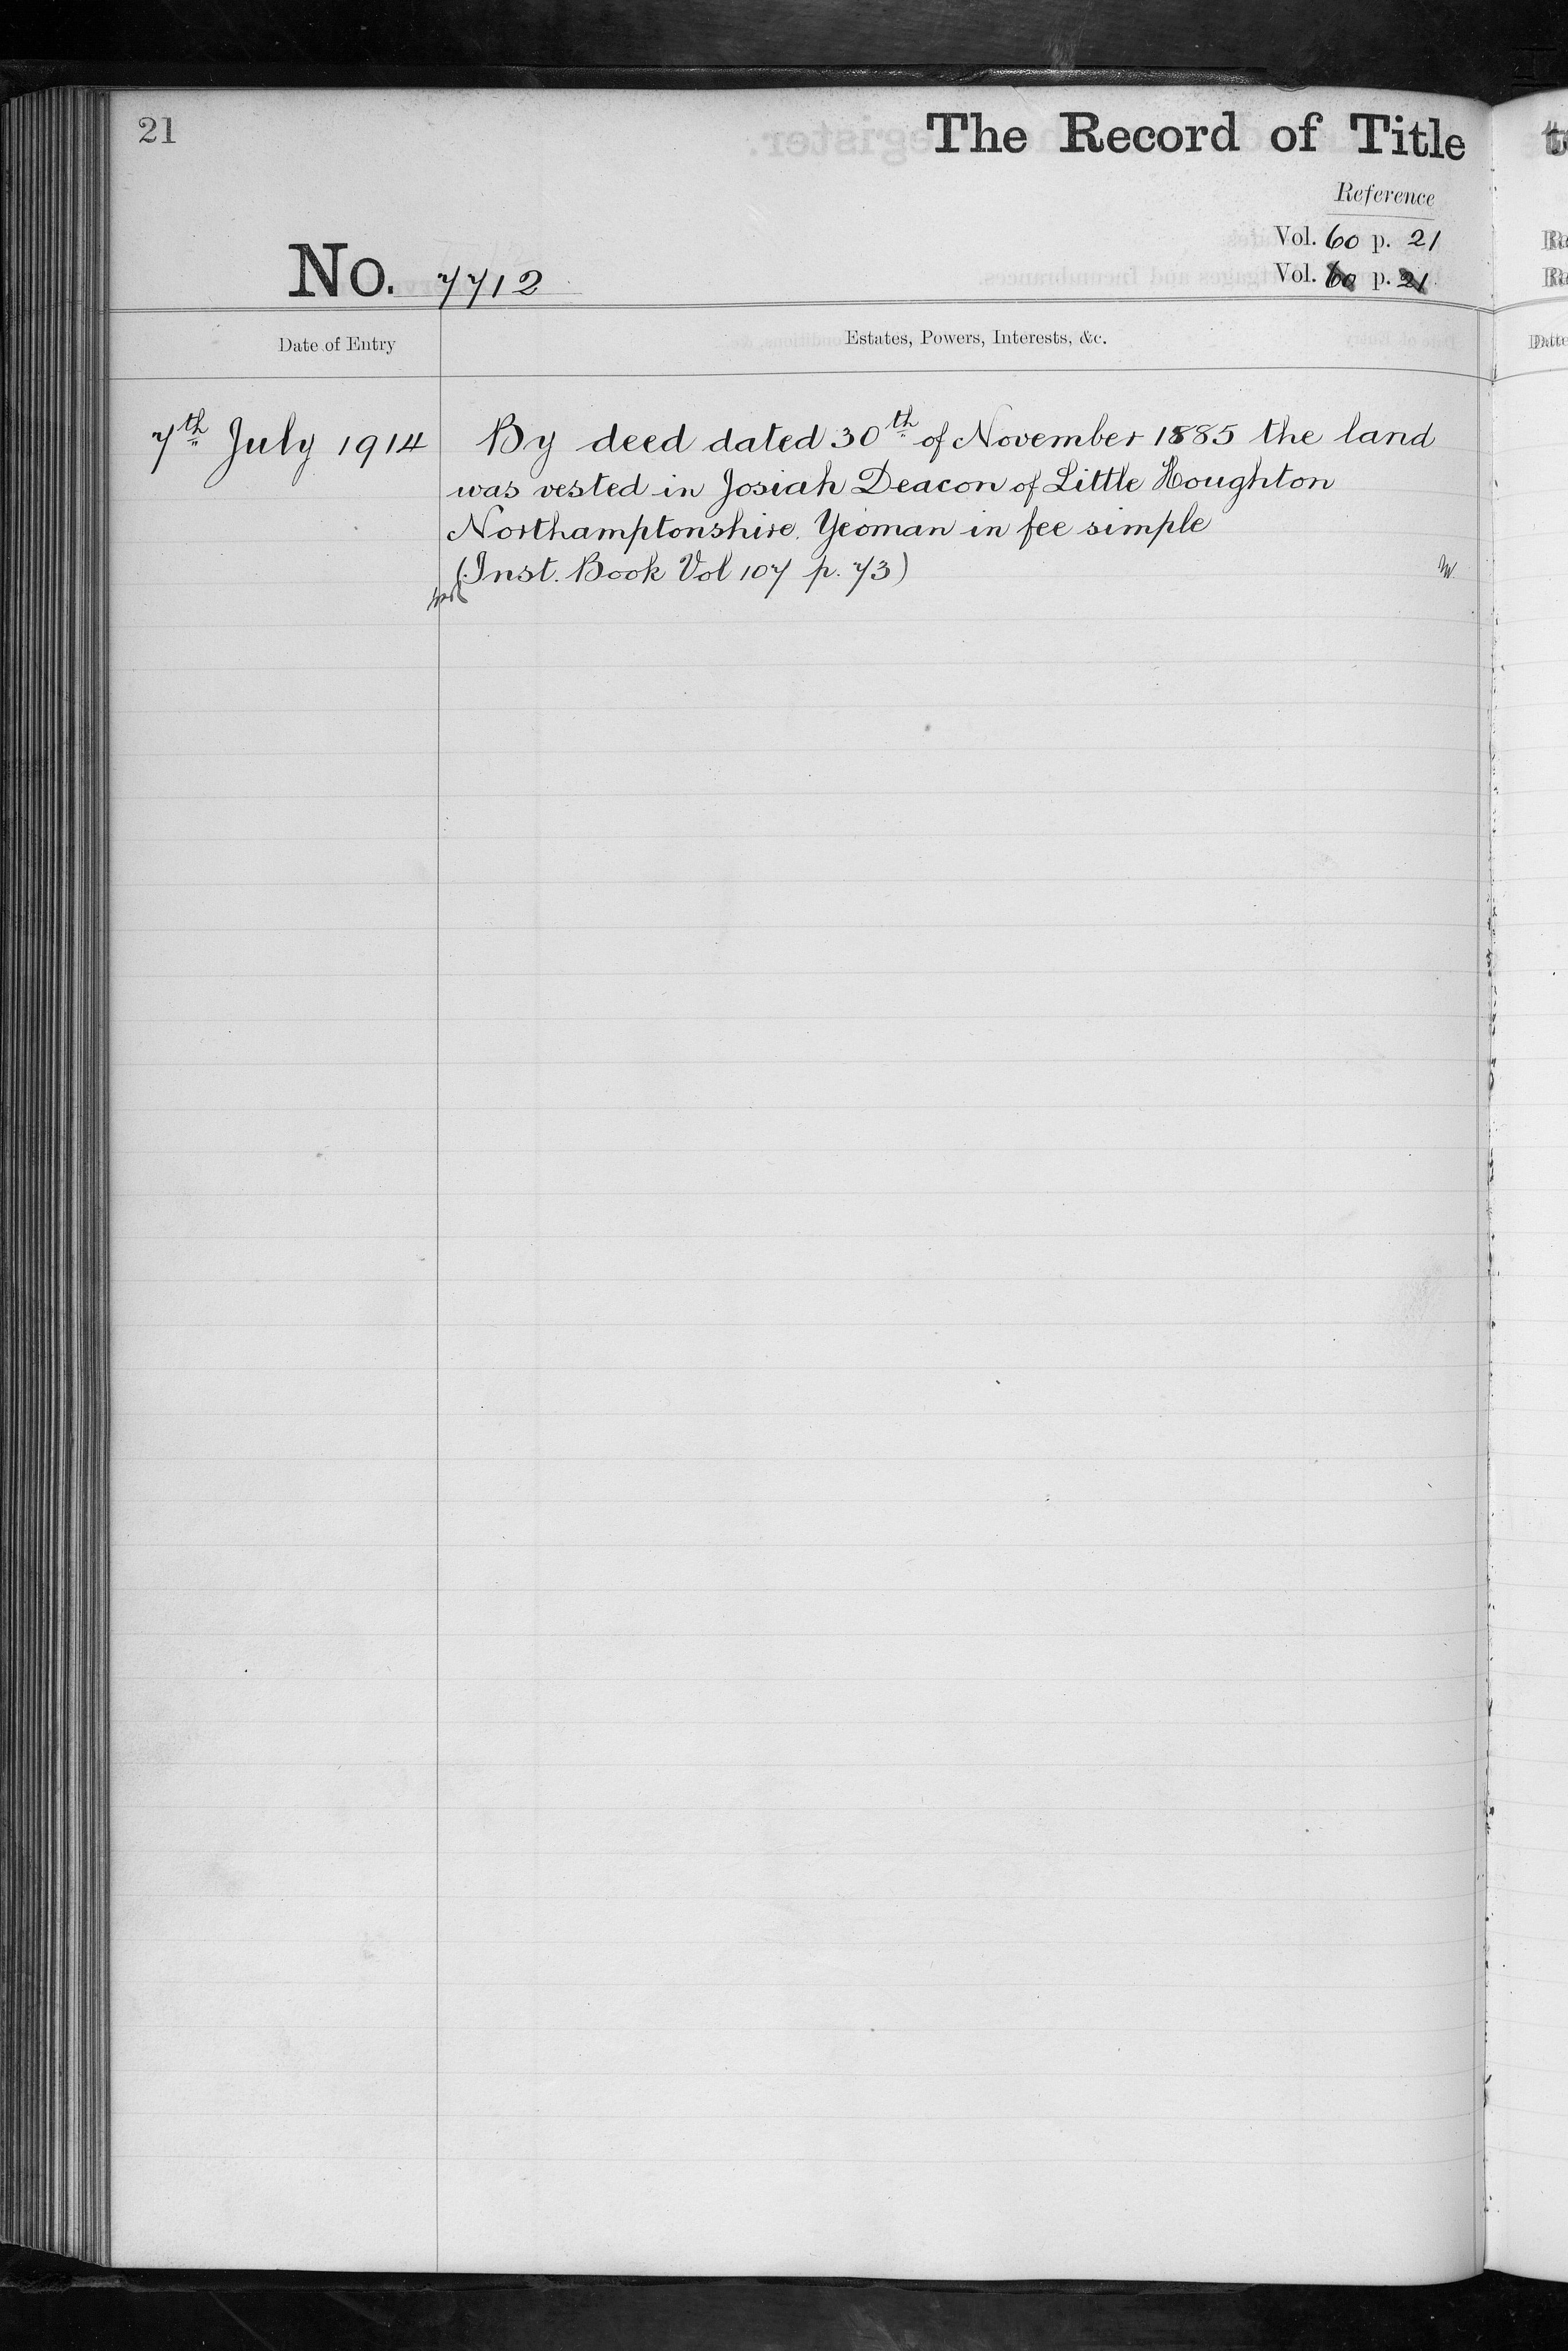 21
The Record of Title
Reference
Vol. 60 p. 21
No. 7712
Vol. 60 p. 21
Date of Entry
Estates, Powers, Interests, &c.
7th July 1914
By deed dated 30th of November 1885 the land
was vested in Josiah Deacon of Little Houghton
Northamptonshire. Yeoman in fee simple
(Inst. Book Vol 107 p. 73)